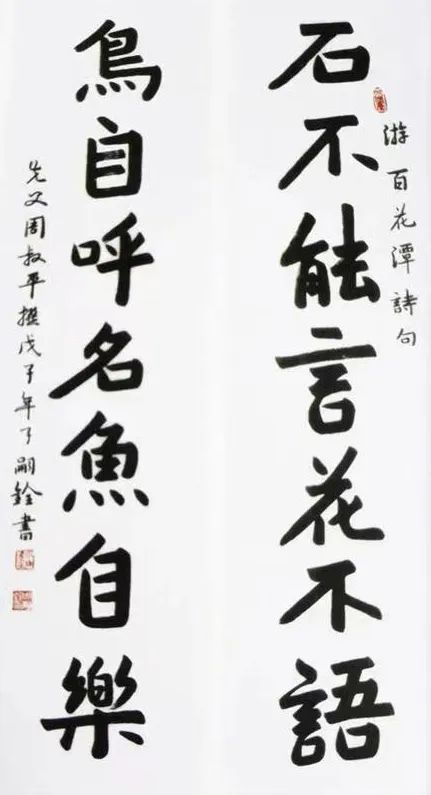 游百花潭詩句
石不能言花不語
鳥自呼名魚自樂
先父周叔平撰戊子年嗣銓書